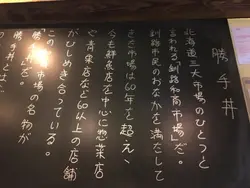 勝手丼
北海道三大市場のひとつと
言われる「釧路和商市場」だ。
釧路市民のおなかを満たして
きた市場は60年を超え、
今も鮮魚店を中心に惣菜店
や青果店など60以上の店舗
がひしめき合っている。
この
市場の名物が
「勝手丼」